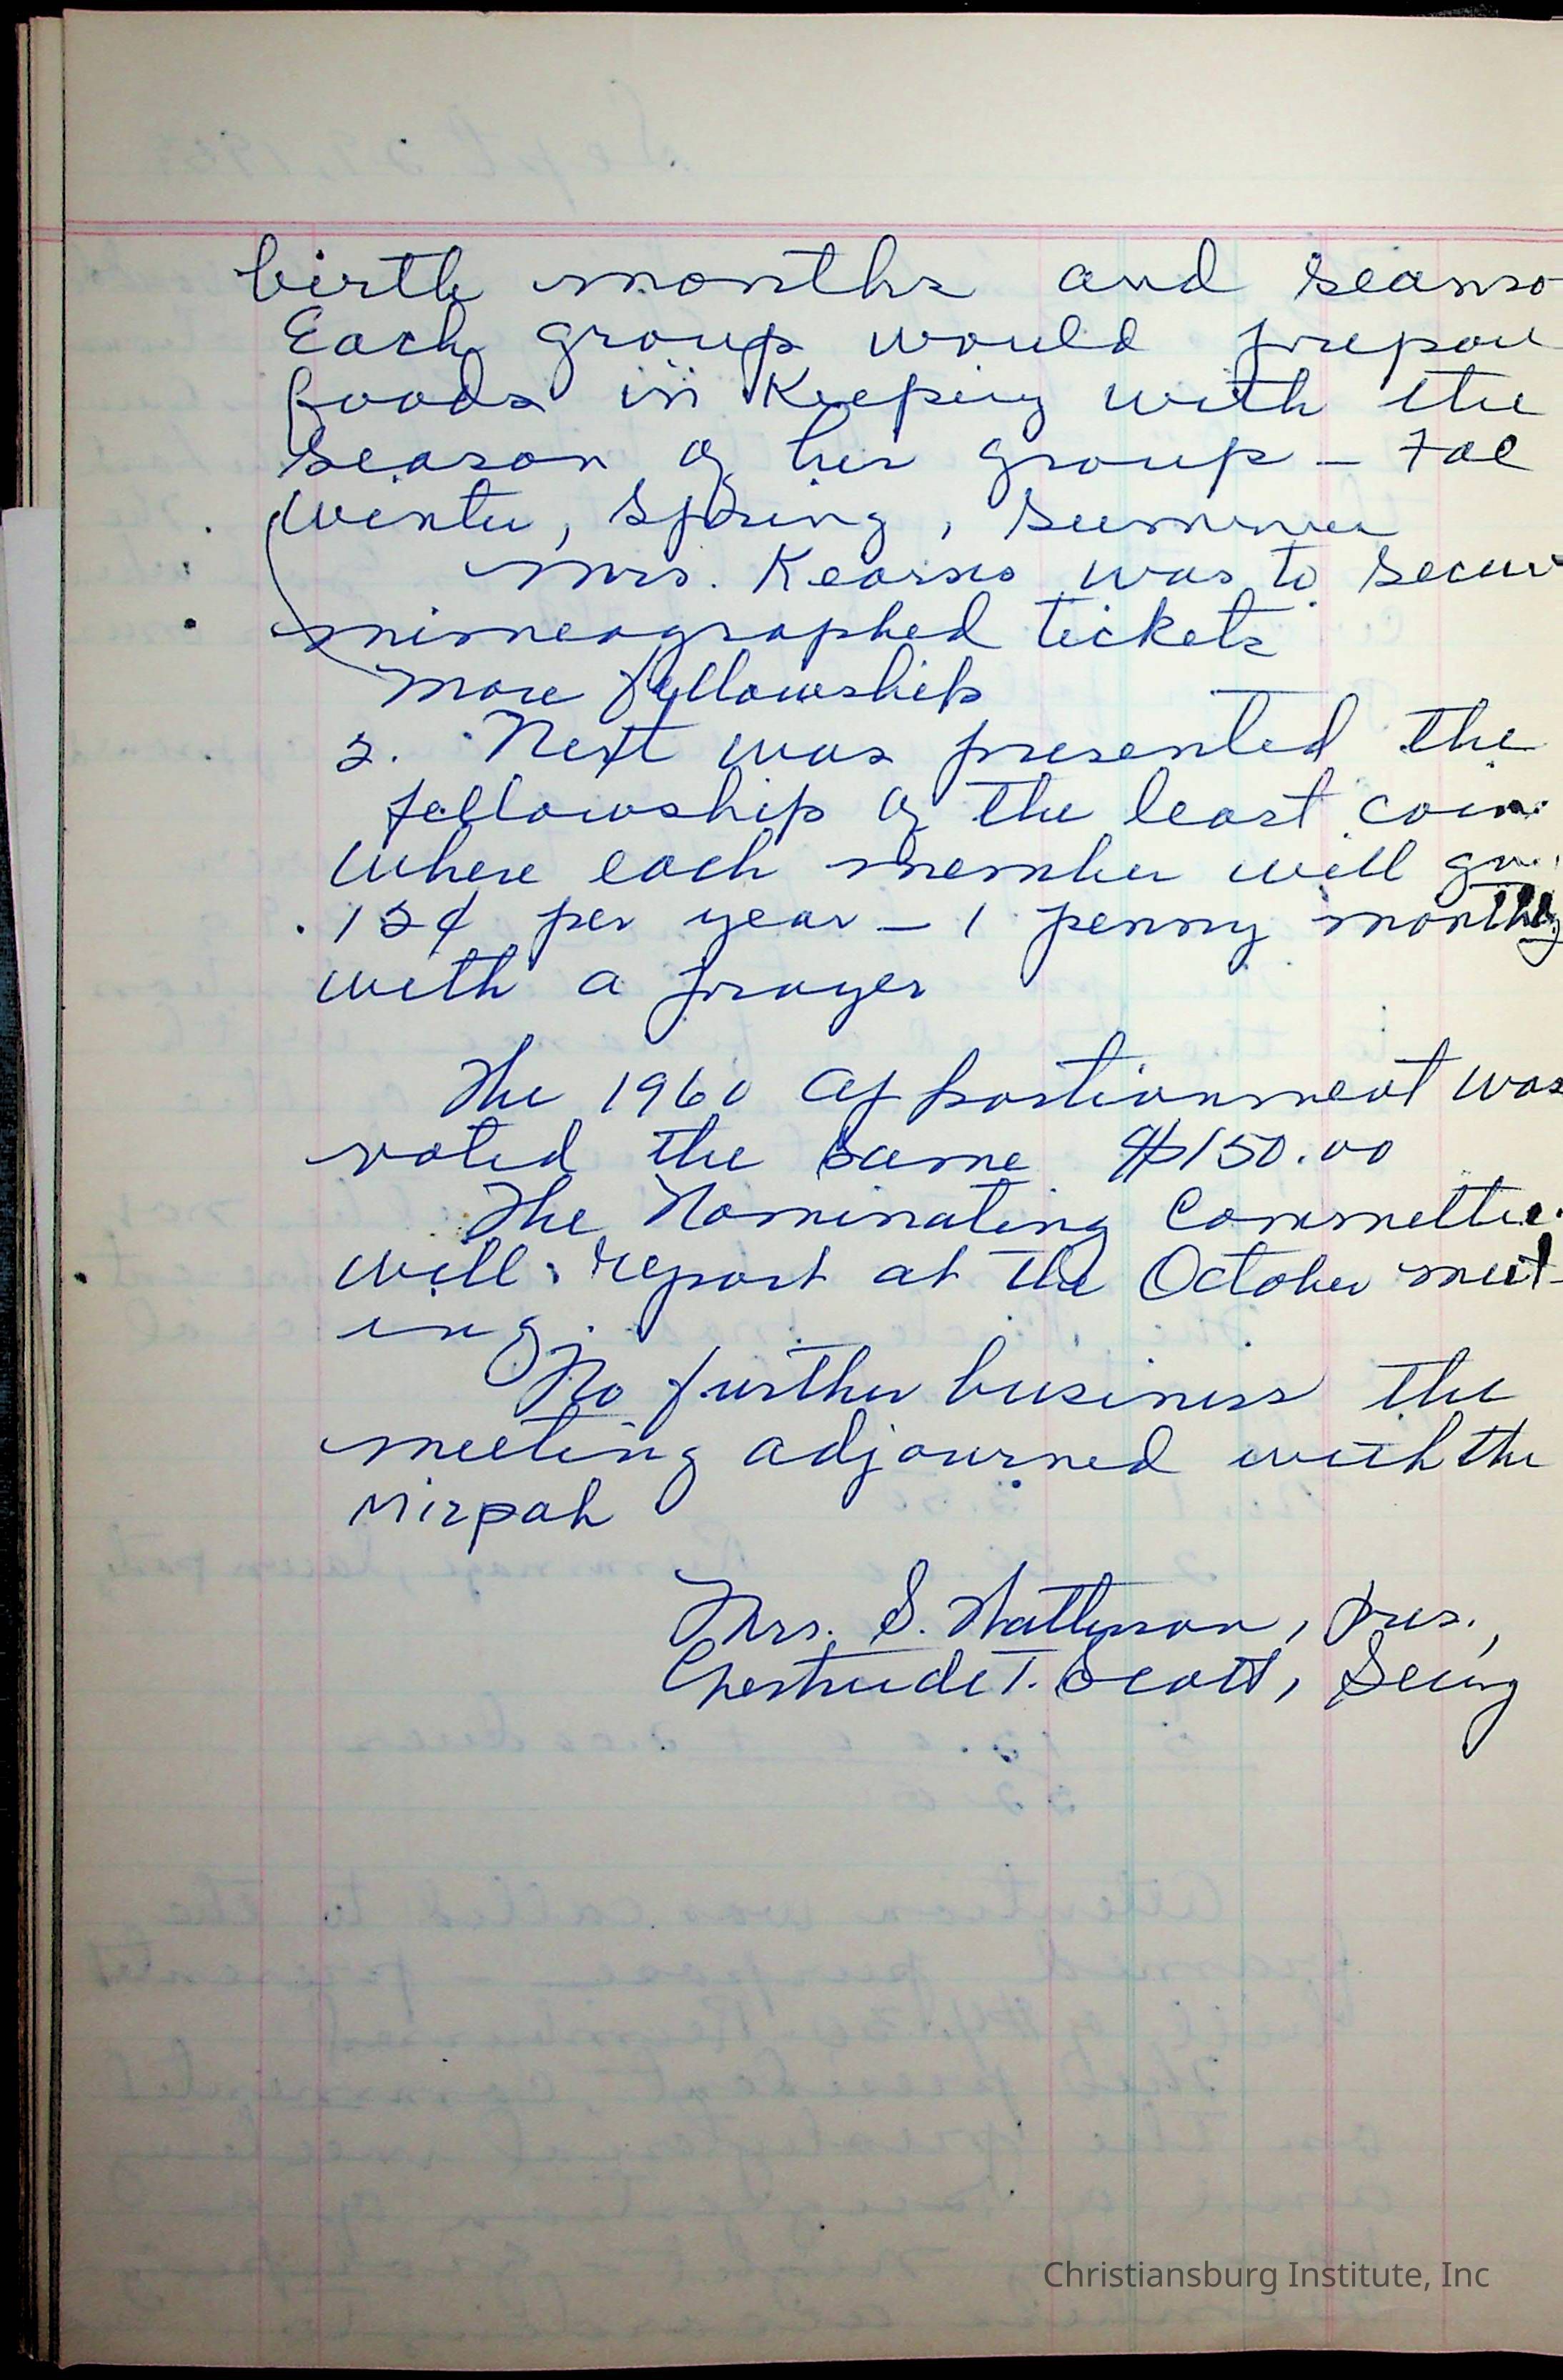 birth months and seaso
Each group would prepar
foods in Keeping with the
season of her group - Fal
Winter, Spring, Summer
Mrs. Kearns was to secur
mimeographed tickets
More fellowship
2. Next was presented the
fellowship of the least coin
where each member will giv
12¢ per year - 1 penny monthly
with a prayer
The 1960 apportionment was
voted the same $150.00
The Nominating Committee
will report at the October meet-
ing.
No further business the
meeting adjourned with the
Mizpah
Mrs. S. Patterson, Pres.,
Gertrude T. Scott, Secy
Christiansburg Institute, Inc